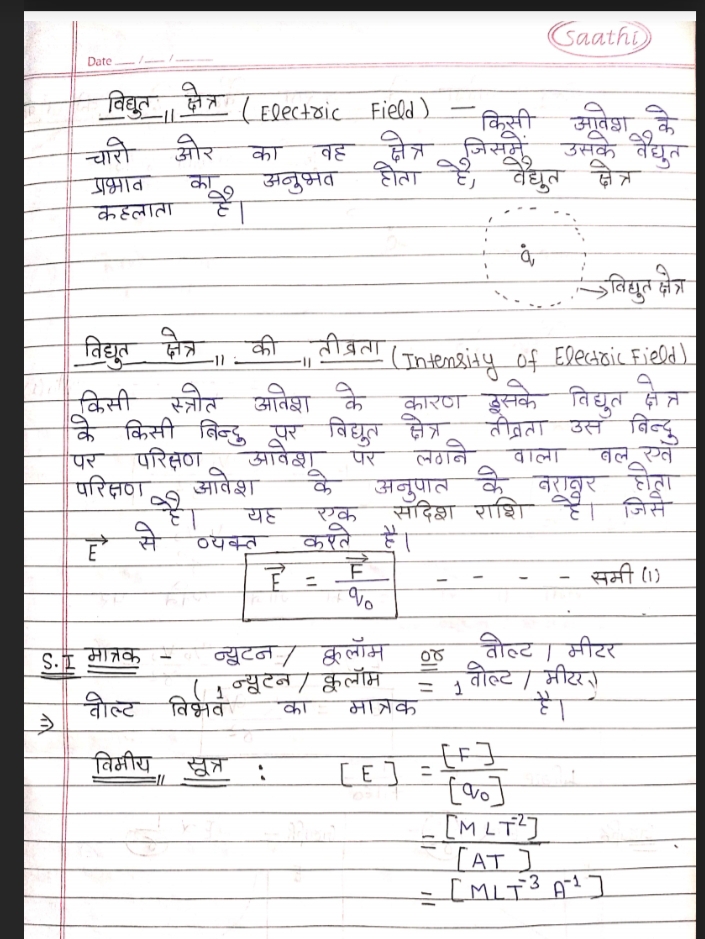 Saathi
Date __/__/__
विद्युत क्षेत्र ( Electric Field) — किसी आवेश के
चारो ओर का वह क्षेत्र जिसमें उसके वैद्युत
प्रभाव का अनुभव होता है, वैद्युत क्षेत्र
कहलाता है।
q
→विद्युत क्षेत्र
विद्युत क्षेत्र की तीव्रता (Intensity of Electric Field)
किसी स्त्रोत आवेश के कारण इसके विद्युत क्षेत्र
के किसी बिन्दु पर विद्युत क्षेत्र तीव्रता उस बिन्दु
पर परिक्षण आवेश पर लगने वाला बल एवं
परिक्षण आवेश के अनुपात के बराबर होता
है। यह एक सदिश राशि है। जिसे
E→ से व्यक्त करते है।
E→ = F→ / q₀ - - - - समी (1)
S.I मात्रक - न्यूटन / कूलॉम or वोल्ट / मीटर
( 1 न्यूटन / कूलॉम = 1 वोल्ट / मीटर )
⇒ वोल्ट विभव का मात्रक है।
विमीय सूत्र : [E] = [F] / [q₀]
= [MLT⁻²] / [AT]
= [MLT⁻³ A⁻¹]